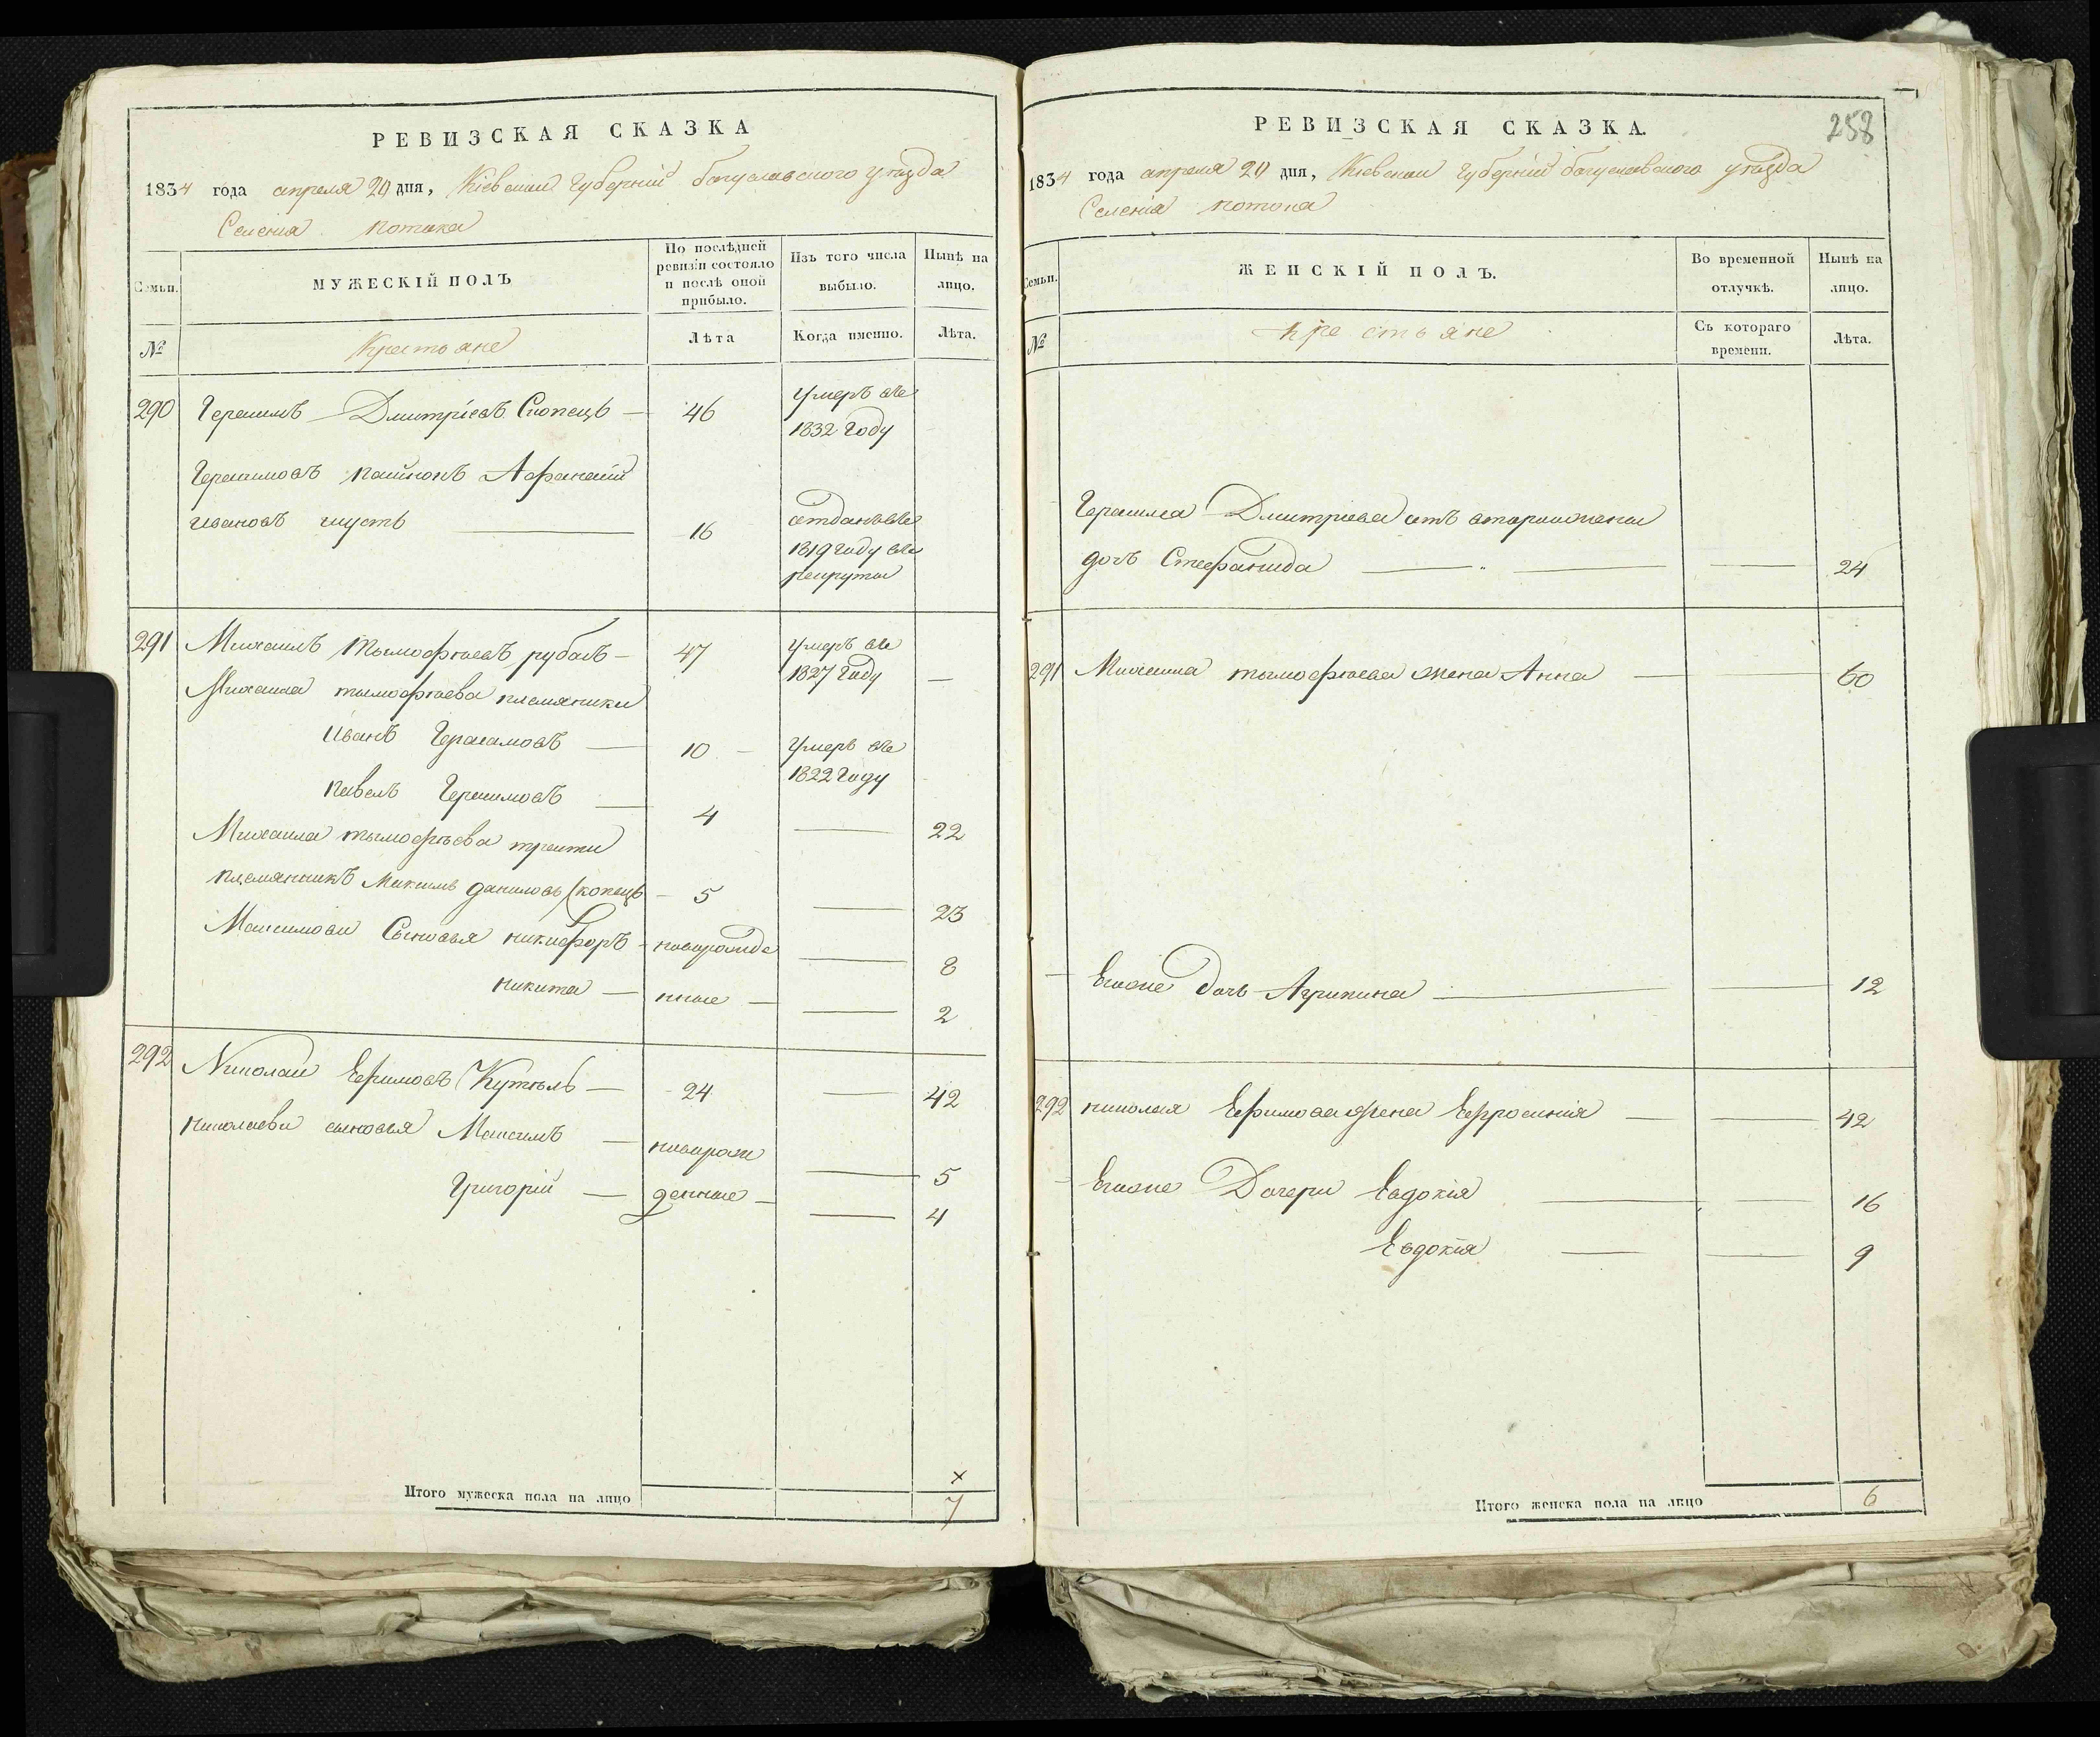 РЕВИЗСКАЯ СКАЗКА
1834 года апреля 20 дня, Кіевской Губерніи богуславского уѣзда
Селенія потока
Семьи.
МУЖЕСКІЙ ПОЛЪ
По послѣдней
ревизіи состояло
и послѣ оной
прибыло.
Изъ того числа
выбыло.
Нынѣ на
лицо.
№
Крестьяне
Лѣта
Когда именно.
Лѣта.
290 Герасимъ Дмитріевъ — 46 умеръ въ
1832 Году
Герасимовъ Афанасий
ивановъ шусть — 16 отданъ въ
1819 году въ
рекруты
291 Михаилъ тымофѣевъ рубанъ — 47 умеръ въ
1827 Году —
Михаила тымофѣева племяники
Иванъ Герасимовъ — 10 — Умеръ въ
1822 Году
павелъ Герасимовъ — 4 — 22
Михаила тымофѣева трети
племянникъ Максимъ даниловъ — 5 — 23
Максимови Сыновья никифоръ — новорожде — 8
никита — нные — — 2
292 Николай Ефимовъ — 24 — 42
Николаеви сыновья Максимъ — новорож — 5
Григорій — денные — — 4
Итого мужеска пола на лицо
×
7
РЕВИЗСКАЯ СКАЗКА.
258
1834 года апреля 20 дня, Кіевской Губерніи богуславского уѣзда
Селенія потока
Семьи.
ЖЕНСКІЙ ПОЛЪ.
Во временной
отлучкѣ.
Нынѣ на
лицо.
№
Крестьяне
Съ котораго
времени.
Лѣта.
Герасима Дмитріева отъ второй жены
дочь Стефанида — — — 24
291 Михаила тымофѣева жена Анна — — 60
Егоже дочь Агрипина — — 12
292 николая Ефимова жена Ефросинія — — 42
Егоже Дочери Евдокія — — 16
Евдокія — — 9
Итого женска пола на лицо 6